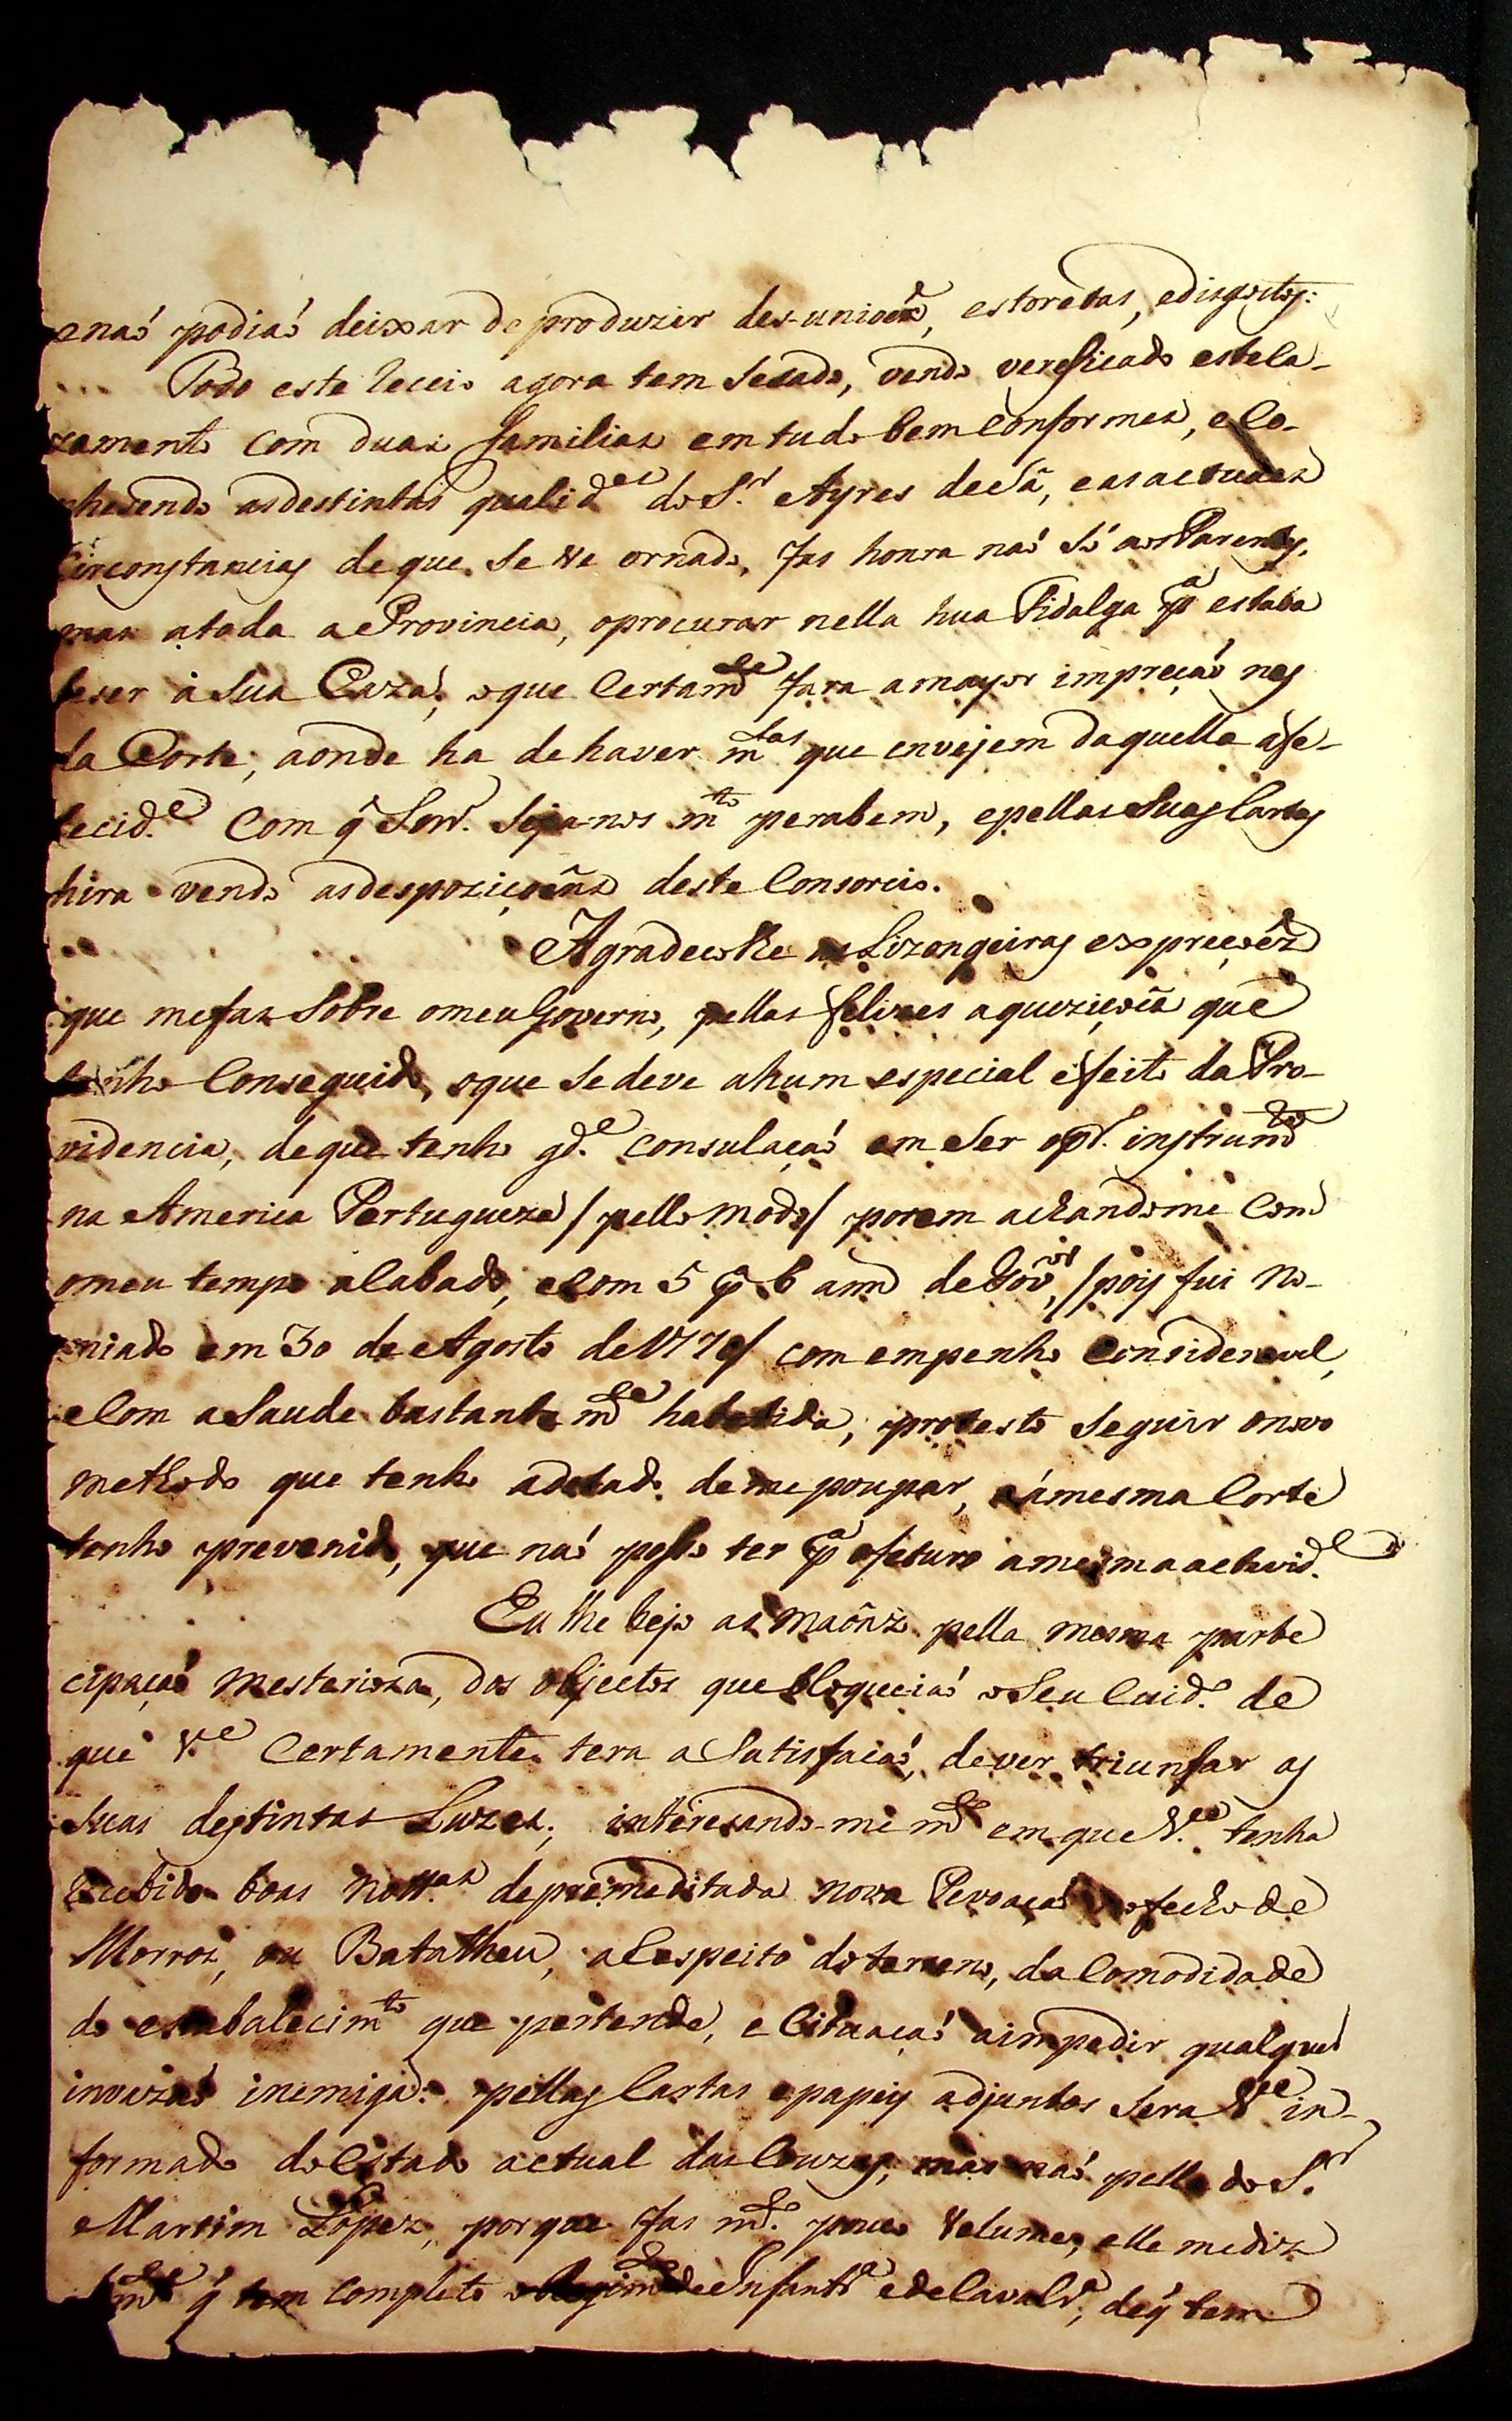 enaó podiaó deixar de produzir des-unioẽs, estoretas, edisgostos:
Todo este receio agora tem Sesado, vendo vereficado este ca-
zamento com duas familias em tudo bem conformes, e co-
nhesendo as destintas qualid.es do S.r Ayres de Sã, e as actuaes
Circonstancias de que se ve ornado, fas honra naó só aos Parentes,
mas atoda a Provincia, oprocurar nella hua Fidalga p.a estabe
leser á Sua Caza; oque Certam.te fara a mayor impreçaó nos
da Corte; aonde ha de haver m.tas que envejem daquella afe-
lecid.e Com q̃ Sen.r Seja-nos m.to perabem, epellas Suas Cartas
hira vendo as despoziçoẽns deste Consorcio.
Agradeco lhe as Lizongeiras expreçoẽz
que mefaz Sobre omeu Governo, pellas felizes aquiziçoẽs que
tenho Conseguido, oque se deve ahum especial efeito da Pro-
videncia, de que tenho gd.e consulaçaó em Ser opr. instrum.to
na America Portugueza / pello modo / porem achandome Com
omeu tempo acabado, e com 5 p.a 6 ann de Gov.or, / pois fui no-
miado em 30 de Agosto de 1770 / com empenho Consideravel,
e Com a Saude bastante m.te habatida, protesto Seguir onovo
methodo que tenho adotado de me poupar, e á mesma Corte
tenho prevenido, que naó posso ter p.a ofeturo a mesma actevid.e
Eu lhe bejo as maõnz pella mesma parte
cipaçaó mesterioza, dos objectos que bloqueiaó o Seu Cuid.o de
que V.e Certamente tera a Satisfaçaó, de ver triunfar as
Suas destintas Luzes; interesando-me m.to em que V.ce tenha
recebido boas nott.as da premeditada nova Povoaçaó do fecho de
Morros, ou Batatheu, a Respeito do terreno, da Comodidade
do estabalecim.to que pertende, e Cituaçaó aimpedir qualquer
invazaó inemiga: pellas Cartas epapeis adjuntos Sera V.ce in-
formado do Estado actual das Couzas, mas naó pello do S.r
Martim Lopez, porque fas m.to pouco Velume, elle mediz
m.te q̃ tem completo o Regim.to de Infantr.a e de Cavalr.a, de q̃ tem